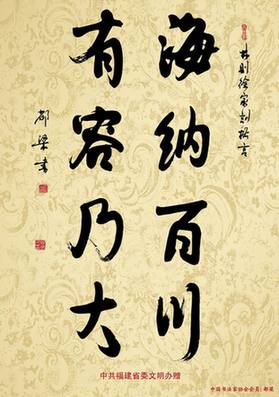 林则徐家训格言
海纳百川
有容乃大
郝梁书
中共福建省委文明办赠
中国书法家协会会员：郝梁